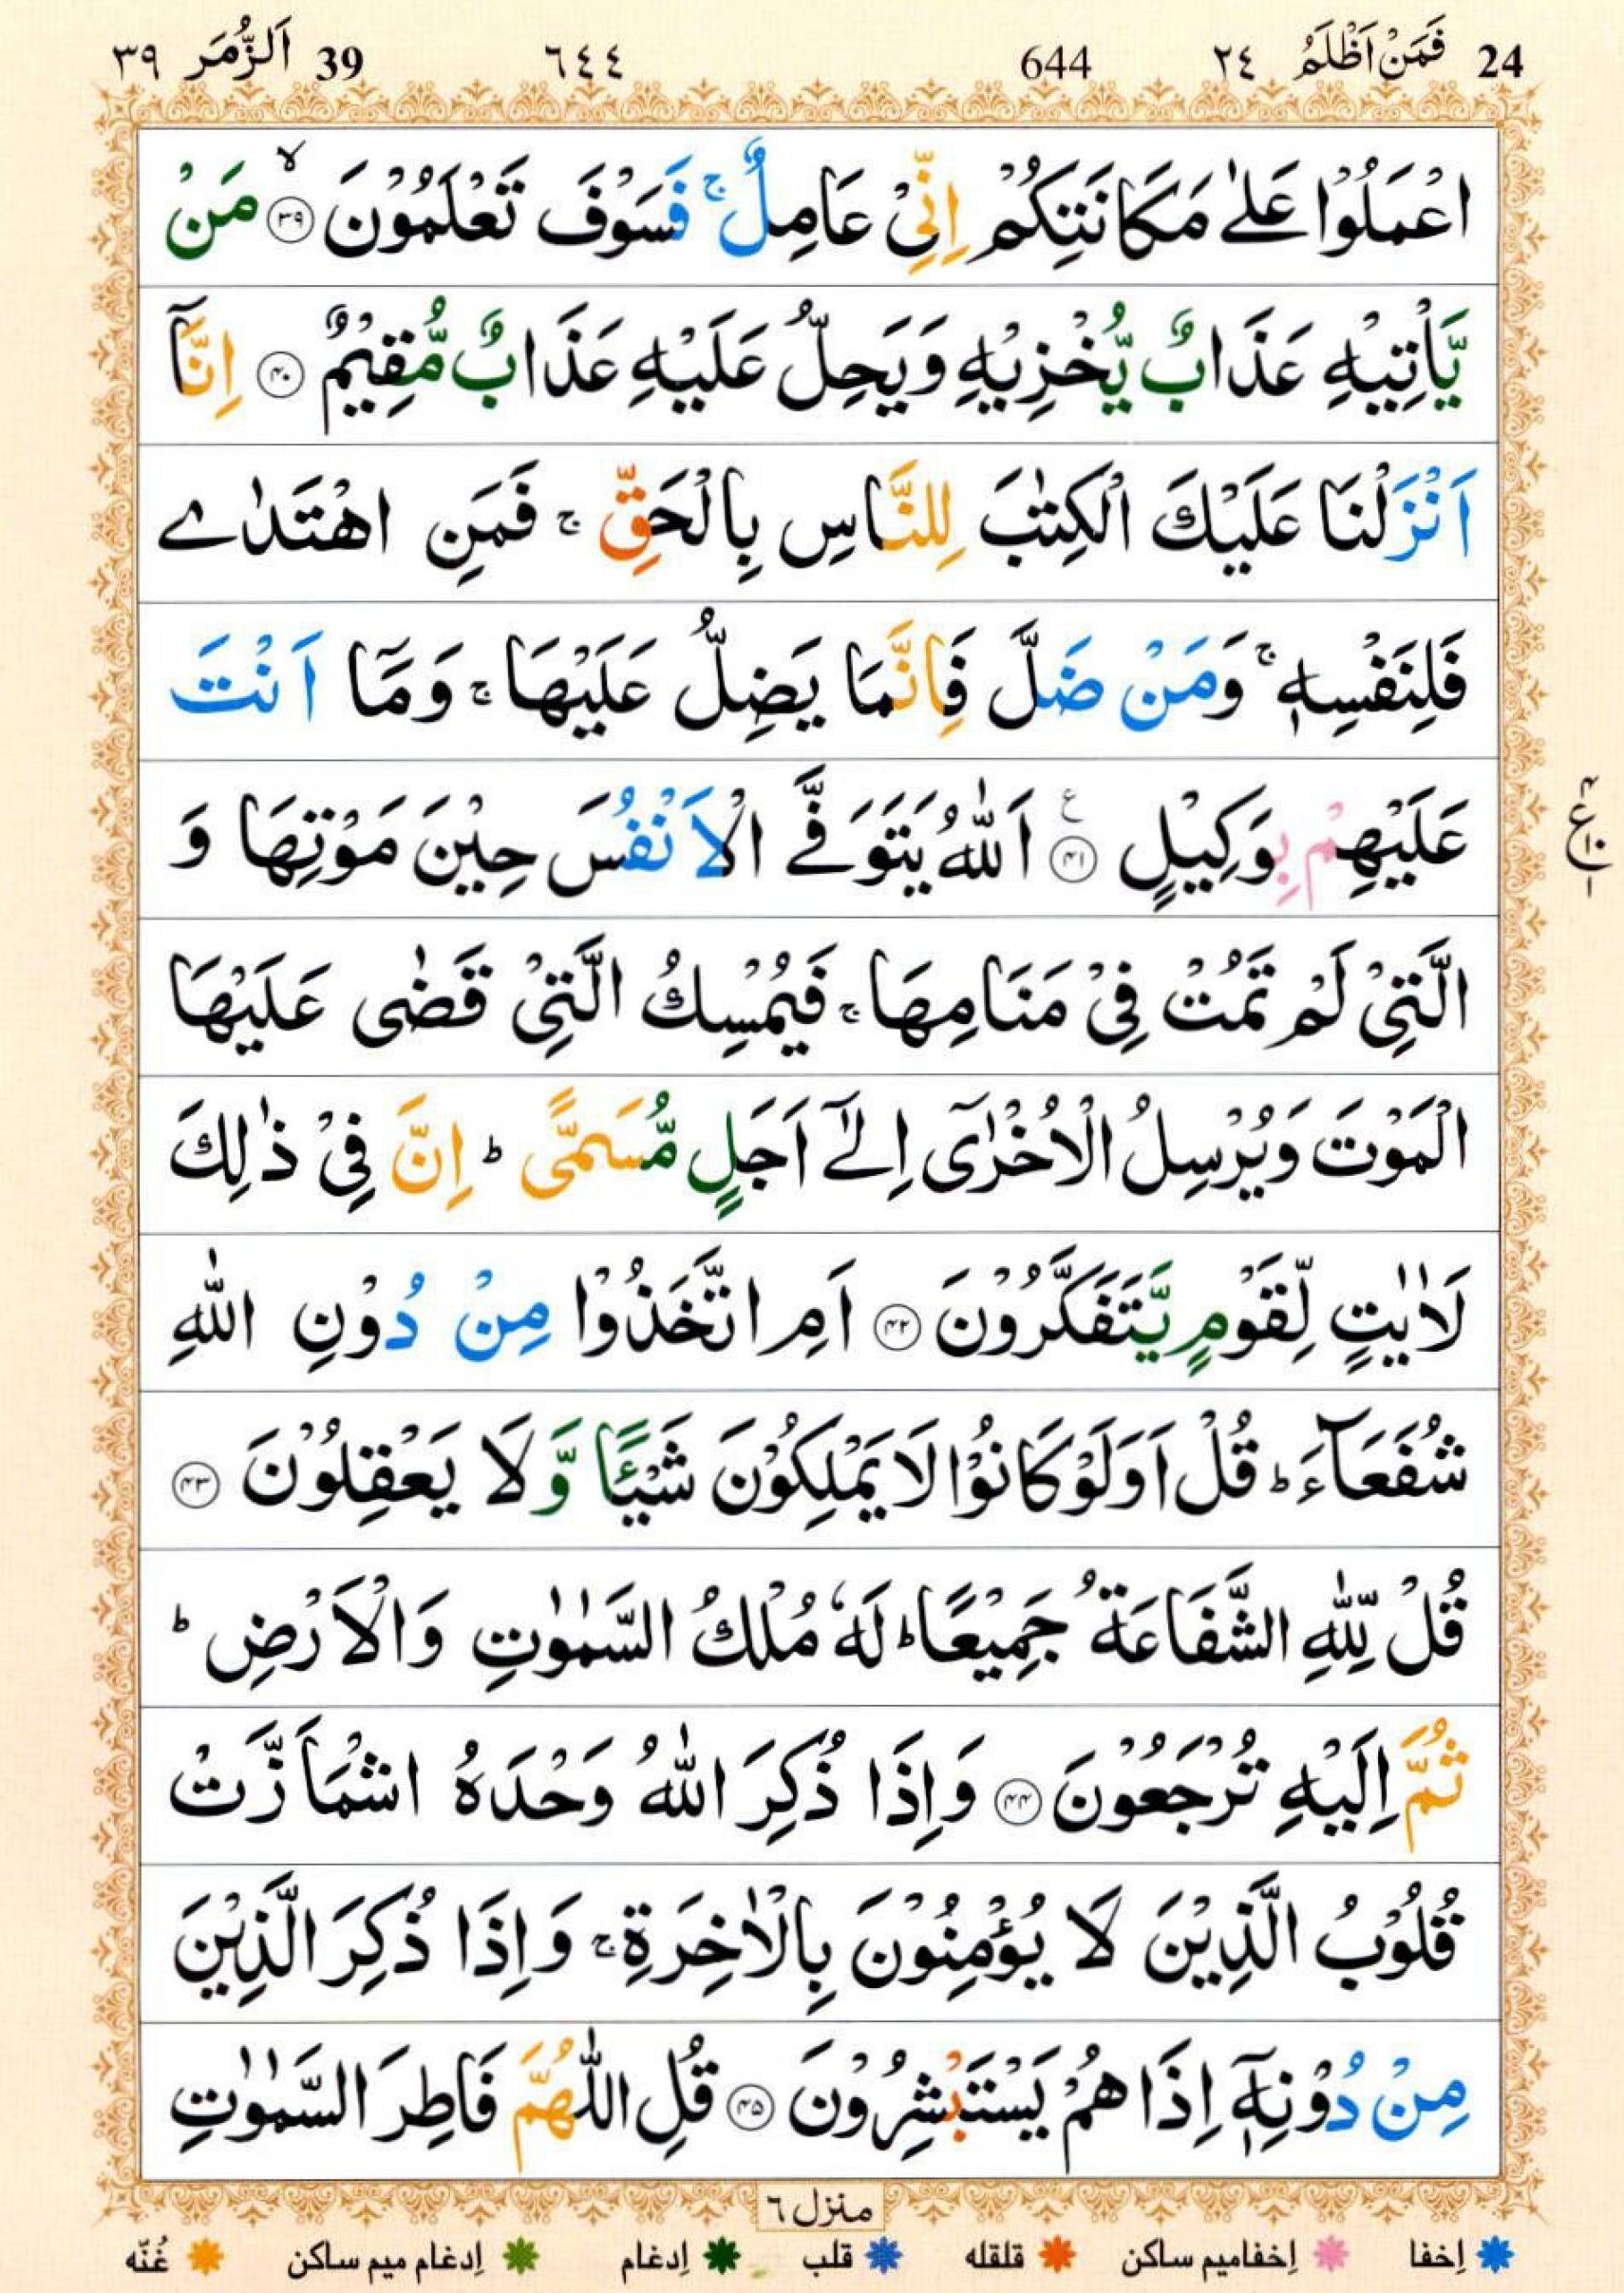 24 فَمَنْ اَظْلَمُ ٢٤ 644 ٦٤٤ 39 اَلزُّمَر ٣٩
اعْمَلُوْا عَلٰى مَكَانَتِكُمْ اِنِّىْ عَامِلٌ ۚ فَسَوْفَ تَعْلَمُوْنَ ۙ‏﴿۳۹﴾ مَنْ
يَّاْتِيْهِ عَذَابٌ يُّخْزِيْهِ وَيَحِلُّ عَلَيْهِ عَذَابٌ مُّقِيْمٌ ﴿۴۰﴾ اِنَّاۤ
اَنْزَلْنَا عَلَيْكَ الْكِتٰبَ لِلنَّاسِ بِالْحَقِّ ۚ فَمَنِ اهْتَدٰے
فَلِنَفْسِهٖ ۚ وَمَنْ ضَلَّ فَاِنَّمَا يَضِلُّ عَلَيْهَا ۚ وَمَاۤ اَنْتَ
عَلَيْهِمْ بِوَكِيْلٍ ﴿۴۱﴾ ع اَللّٰهُ يَتَوَفَّے الْاَنْفُسَ حِيْنَ مَوْتِهَا وَ
ع ۴ ۱۰ ۱
الَّتِىْ لَمْ تَمُتْ فِىْ مَنَامِهَا ۚ فَيُمْسِكُ الَّتِىْ قَضٰى عَلَيْهَا
الْمَوْتَ وَيُرْسِلُ الْاُخْرٰٓى اِلٰٓے اَجَلٍ مُّسَمًّى ؕ اِنَّ فِىْ ذٰلِكَ
لَاٰيٰتٍ لِّقَوْمٍ يَّتَفَكَّرُوْنَ ﴿۴۲﴾ اَمِ اتَّخَذُوْا مِنْ دُوْنِ اللّٰهِ
شُفَعَآءَ ؕ قُلْ اَوَلَوْ كَانُوْا لَا يَمْلِكُوْنَ شَيْـًٔا وَّلَا يَعْقِلُوْنَ ﴿۴۳﴾
قُلْ لِّلّٰهِ الشَّفَاعَةُ جَمِيْعًا ؕ لَهٗ مُلْكُ السَّمٰوٰتِ وَالْاَرْضِ ؕ
ثُمَّ اِلَيْهِ تُرْجَعُوْنَ ﴿۴۴﴾ وَاِذَا ذُكِرَ اللّٰهُ وَحْدَهُ اشْمَاَزَّتْ
قُلُوْبُ الَّذِيْنَ لَا يُؤْمِنُوْنَ بِالْاٰخِرَةِ ۚ وَاِذَا ذُكِرَ الَّذِيْنَ
مِنْ دُوْنِهٖۤ اِذَا هُمْ يَسْتَبْشِرُوْنَ ﴿۴۵﴾ قُلِ اللّٰهُمَّ فَاطِرَ السَّمٰوٰتِ
منزل ٦
اِخفا اِخفامیم ساکن قلقله قلب اِدغام اِدغام میم ساکن غُنّه